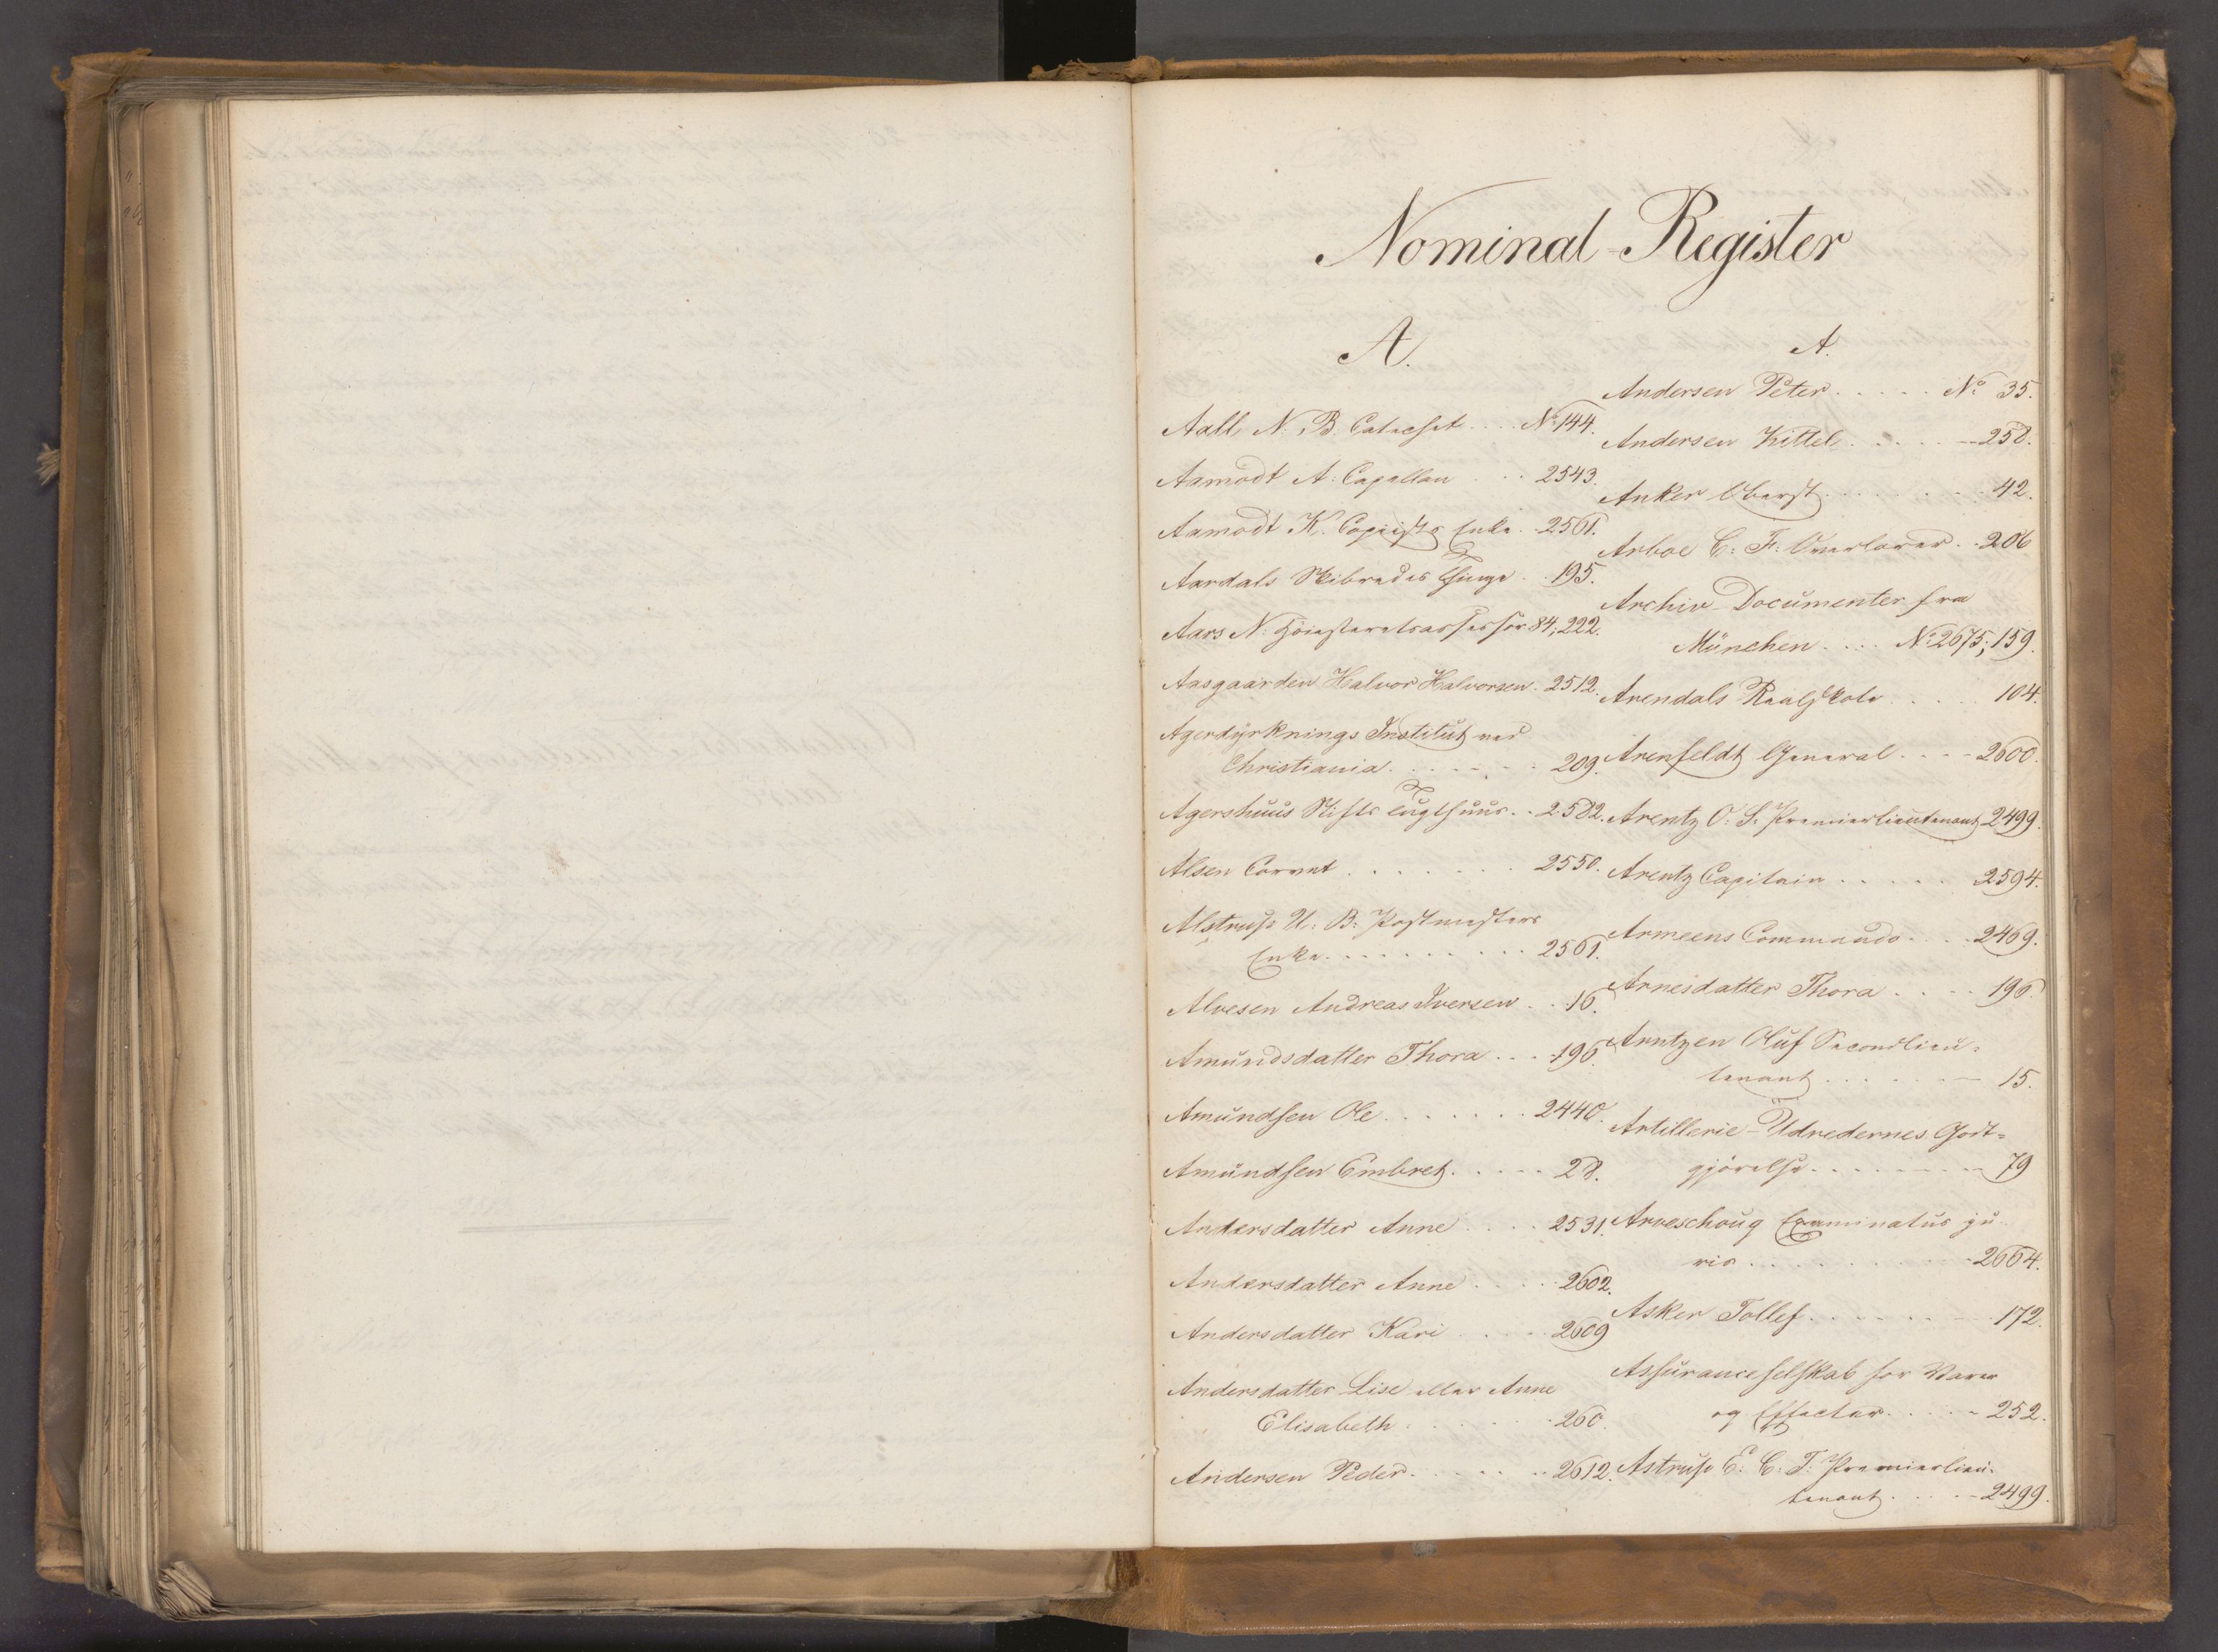 Nominal-Register
A.
Aall N. B. Catechet . . . No 144.
Aamodt A: Capellan . . . 2543.
Aamodt K. Copiists Enke . 2561.
Aardals Skibredes Thinge . . 195.
Aars N: Høiesteretsassessor 84; 222.
Aasgaarden Halvor Halvorsen . 2512.
Agerdyrknings Institut ved
Christiania . . . . . . 209.
Agershuus Stifts Tugthuus . . 2582.
Alsen Cornet . . . . . . . 2550.
Alstrup U: B: Postmesters
Enke . . . . . . . . . . 2561.
Alvesen Andreas Iversen . . 16.
Amundsdatter Thora . . . 196.
Amundsen Ole . . . . . . . 2440.
Amundsen Embret . . . . . 28.
Andersdatter Anne . . . . 2531.
Andersdatter Anne . . . . . 2602.
Andersdatter Kari . . . . . 2609
Andersdatter Lise eller Anne
Elisabeth . . . . . . . 260.
Andersen Peder . . . . . . 2612.
A.
Andersen Peter . . . . . No 35.
Andersen Kittel . . . . . . 258.
Anker Oberst . . . . . . . . 42.
Arboe C: F: Overlærer . . 206
Archiv-Documenter fra
München . . . . No 2675; 159.
Arendals Realskole . . . . . 104.
Arenfeldt General . . . . 2600.
Arentz O: S: Premierlieutenant 2499.
Arentz Capitain . . . . . 2594.
Armeens Commando . . . . 2469.
Arnesdatter Thora . . . . 196.
Arntzen Oluf Secondlieu-
tenant . . . . . . . 15.
Artillerie-Udredernes Godt-
gjørelse . . . . . . . . 79
Arveschoug Examinatus ju-
ris . . . . . . . . . . 2664.
Asker Tollef . . . . . . . . 172.
Assuranceselskab for Varer
og Effecter . . . . . 252.
Astrup E: C: T: Premierlieu-
tenant . . . . . 2499.